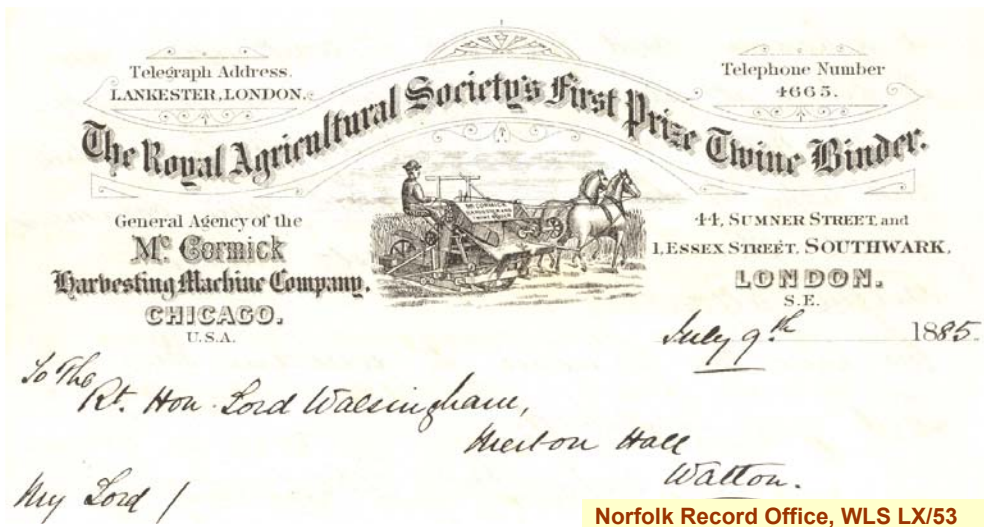 Telegraph Address.
LANKESTER, LONDON.
Telephone Number
4665.
The Royal Agricultural Society's First Prize Twine Binder.
General Agency of the
Mc. Cormick
Harvesting Machine Company.
CHICAGO.
U.S.A.
44, SUMNER STREET, and
1, ESSEX STREET, SOUTHWARK,
LONDON.
S.E.
July 9th 1885.
To The
Rt. Hon. Lord Walsingham,
Merton Hall
Watton.
My Lord /
Norfolk Record Office, WLS LX/53